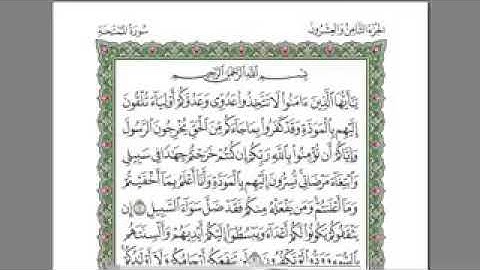 الجزء الثامن والعشرون
سورة الممتحنة
بِسْمِ اللَّهِ الرَّحْمَٰنِ الرَّحِيمِ
يَٰٓأَيُّهَا ٱلَّذِينَ ءَامَنُوا۟ لَا تَتَّخِذُوا۟ عَدُوِّى وَعَدُوَّكُمْ أَوْلِيَآءَ تُلْقُونَ
إِلَيْهِم بِٱلْمَوَدَّةِ وَقَدْ كَفَرُوا۟ بِمَا جَآءَكُم مِّنَ ٱلْحَقِّ يُخْرِجُونَ ٱلرَّسُولَ
وَإِيَّاكُمْ أَن تُؤْمِنُوا۟ بِٱللَّهِ رَبِّكُمْ إِن كُنتُمْ خَرَجْتُمْ جِهَٰدًا فِى سَبِيلِى
وَٱبْتِغَآءَ مَرْضَاتِى تُسِرُّونَ إِلَيْهِم بِٱلْمَوَدَّةِ وَأَنَا۠ أَعْلَمُ بِمَآ أَخْفَيْتُمْ
وَمَآ أَعْلَنتُمْ وَمَن يَفْعَلْهُ مِنكُمْ فَقَدْ ضَلَّ سَوَآءَ ٱلسَّبِيلِ ١ إِن
يَثْقَفُوكُمْ يَكُونُوا۟ لَكُمْ أَعْدَآءً وَيَبْسُطُوٓا۟ إِلَيْكُمْ أَيْدِيَهُمْ وَأَلْسِنَتَهُم
بِٱلسُّوٓءِ وَوَدُّوا۟ لَوْ تَكْفُرُونَ ٢ لَن تَنفَعَكُمْ أَرْحَامُكُمْ وَلَآ أَوْلَٰدُكُمْ